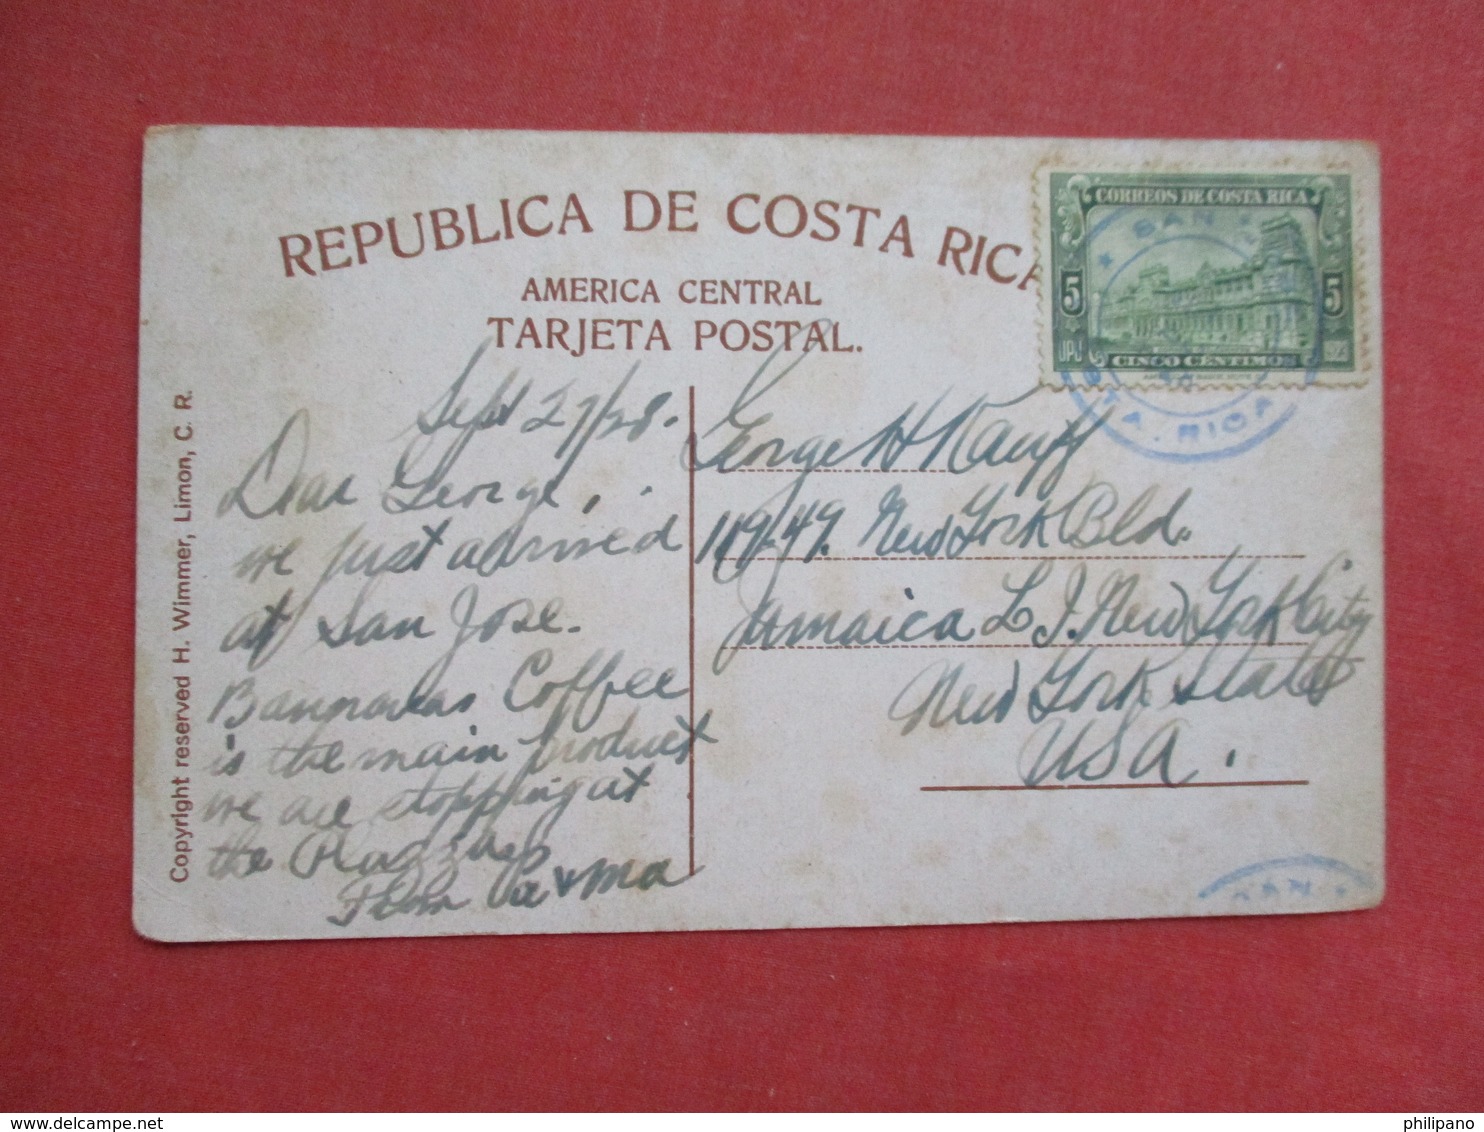 REPUBLICA DE COSTA RICA
AMERICA CENTRAL
TARJETA POSTAL.
CORREOS DE COSTA RICA
5 5
UPU 1923
CINCO CENTIMOS
SAN
STA. RICA
Copyright reserved H. Wimmer, Limon, C. R.
Sept 27/28.
Dear George,
we just arrived
at San Jose.
Bannanas Coffee
is the main product
we are stopping at
the
From Pa & Ma
George H Kauff
119-49. New York Bld.
Jamaica L I. New York City
New York State
USA.
SAN
delcampe.net
philipano